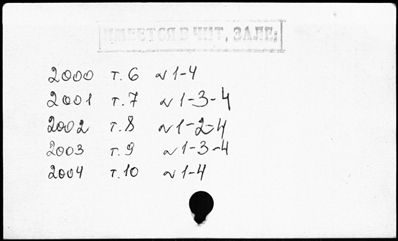 ИМЕЕТСЯ В ЧИТ. ЗАЛЕ:
2000 т.6 № 1-4
2001 т.7 № 1-3-4
2002 т.8 № 1-2-4
2003 т.9 № 1-3-4
2004 т.10 № 1-4